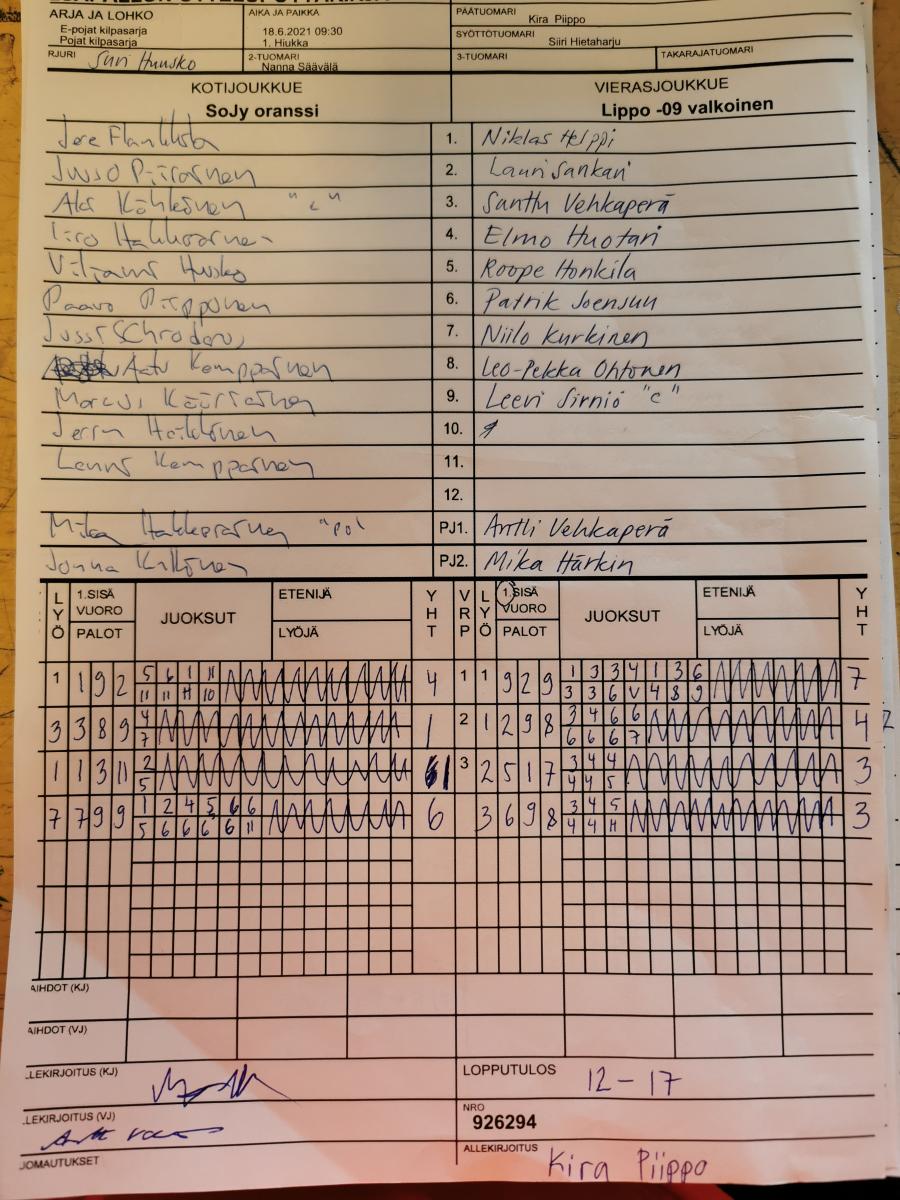 ARJA JA LOHKO
AIKA JA PAIKKA
PÄÄTUOMARI
Kira Piippo
E-pojat kilpasarja
Pojat kilpasarja
18.6.2021 09:30
1. Hiukka
SYÖTTÖTUOMARI
Siiri Hietaharju
RJURI
Suri Huusko
2-TUOMARI
Nanna Säävälä
3-TUOMARI
TAKARAJATUOMARI
KOTIJOUKKUE
VIERASJOUKKUE
SoJy oranssi
Lippo -09 valkoinen
Jere 1. Niklas Helppi
Juuso Piirainen 2. Lauri Sankari
Aki Köhkönen "c" 3. Santtu Vehkaperä
Iiro Hakkarainen 4. Elmo Huotari
Viljami Husko 5. Roope Honkila
Paavo Piipponen 6. Patrik Joensuu
Jussi Schroderus 7. Niilo Kurkinen
Aatu Kemppainen 8. Leo-Pekka Ohtonen
Marcus Kääriäinen 9. Leevi Sirniö "c"
Jerry Heikkinen 10.
Lenni Kemppainen 11.
12.
Mika Hakkarainen "pj" PJ1. Antti Vehkaperä
Jonna PJ2. Mika Härkin
LYÖ 1.SISÄ VUORO JUOKSUT ETENIJÄ YHT VRP LYÖ 1.SISÄ VUORO JUOKSUT ETENIJÄ YHT
PALOT LYÖJÄ PALOT LYÖJÄ
1 1 9 2 5 6 1 11 4 1 1 9 2 9 1 3 3 4 1 3 6 7
11 11 11 10 3 3 6 V 4 8 9
3 3 8 9 4 1 2 1 2 9 8 3 4 6 6 4 2
7 6 6 6 7
1 1 3 11 2 1 3 2 5 1 7 3 4 4 3
5 4 4 5
7 7 9 9 1 2 4 5 6 6 6 3 6 9 8 3 4 5 3
5 6 6 6 6 11 4 4 11
AIHDOT (KJ)
AIHDOT (VJ)
LEKIRJOITUS (KJ)
LOPPUTULOS 12-17
LEKIRJOITUS (VJ)
NRO
926294
JOMAUTUKSET
ALLEKIRJOITUS Kira Piippo